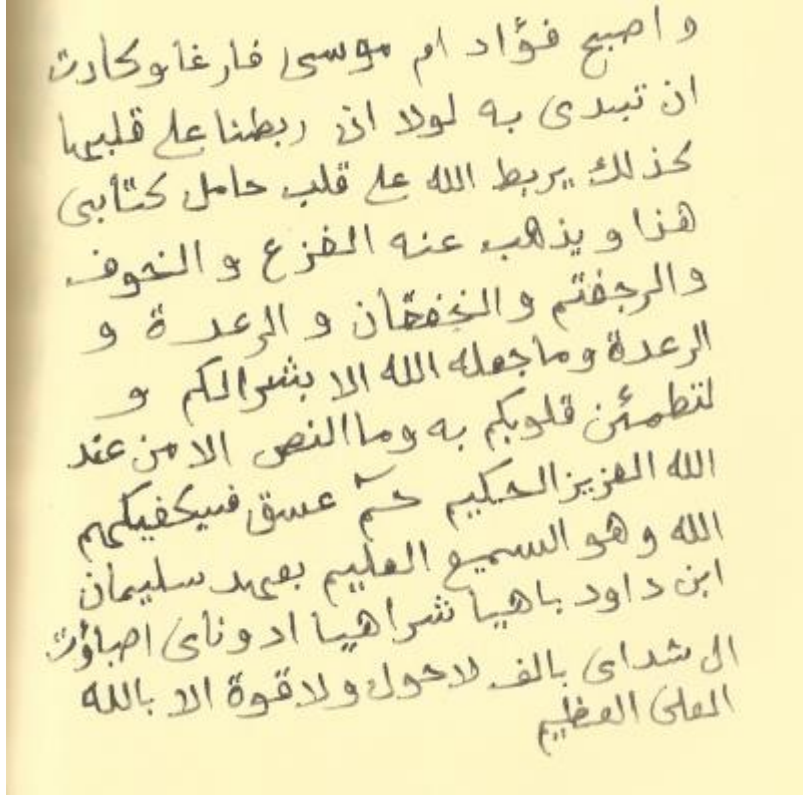 و اصبح فؤاد ام موسى فارغا وكادت
ان تبدى به لولا ان ربطنا على قلبها
كذلك يربط الله على قلب حامل كتابى
هذا و يذهب عنه الفزع و الخوف
والرجفتم و الخفقان و الرعدة و
الرعدة وما جعله الله الا بشرالكم و
لتطمئن قلوبكم به وما النص الا من عند
الله العزيز الحكيم حمٓ عسق فسيكفيكهم
الله وهو السميع العليم بعهد سليمان
ابن داود باهيا شراهيا ادوناى اصباؤت
ال شداى بالف لاحول ولا قوة الا بالله
العلى العظيم